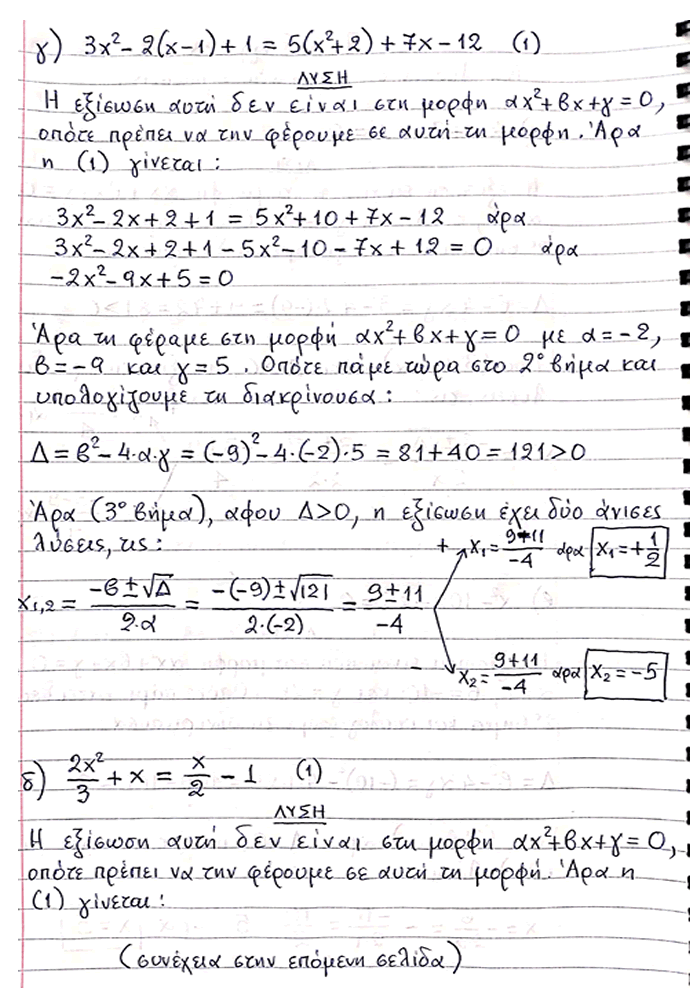 γ) 3x²- 2(x-1)+1 = 5(x²+2) + 7x - 12 (1)
ΛΥΣΗ
Η εξίσωση αυτή δεν είναι στη μορφη αx²+βx+γ=0,
οπότε πρέπει να την φέρουμε σε αυτή τη μορφη. Άρα
η (1) γίνεται:
3x²-2x+2+1 = 5x²+10+7x-12 άρα
3x²-2x+2+1-5x²-10-7x+12=0 άρα
-2x²-9x+5=0
Άρα τη φέραμε στη μορφή αx²+βx+γ=0 με α=-2,
β=-9 και γ=5. Οπότε πάμε τώρα στο 2° βήμα και
υπολογίζουμε τη διακρίνουσα:
Δ=β²-4·α·γ = (-9)²-4·(-2)·5 = 81+40 = 121>0
Άρα (3° βήμα), αφου Δ>0, η εξίσωση έχει δύο άνισες
λύσεις, τις:
+ x₁=(9+11)/(-4) άρα x₁=+1/2
x₁,₂ = (-β±√Δ)/(2·α) = (-(-9)±√121)/(2·(-2)) = (9±11)/(-4)
- x₂=(9+11)/(-4) άρα x₂=-5
δ) 2x²/3 + x = x/2 - 1 (1)
ΛΥΣΗ
Η εξίσωση αυτή δεν είναι στη μορφη αx²+βx+γ=0,
οπότε πρέπει να την φέρουμε σε αυτή τη μορφή. Άρα η
(1) γίνεται:
(συνέχεια στην επόμενη σελίδα)